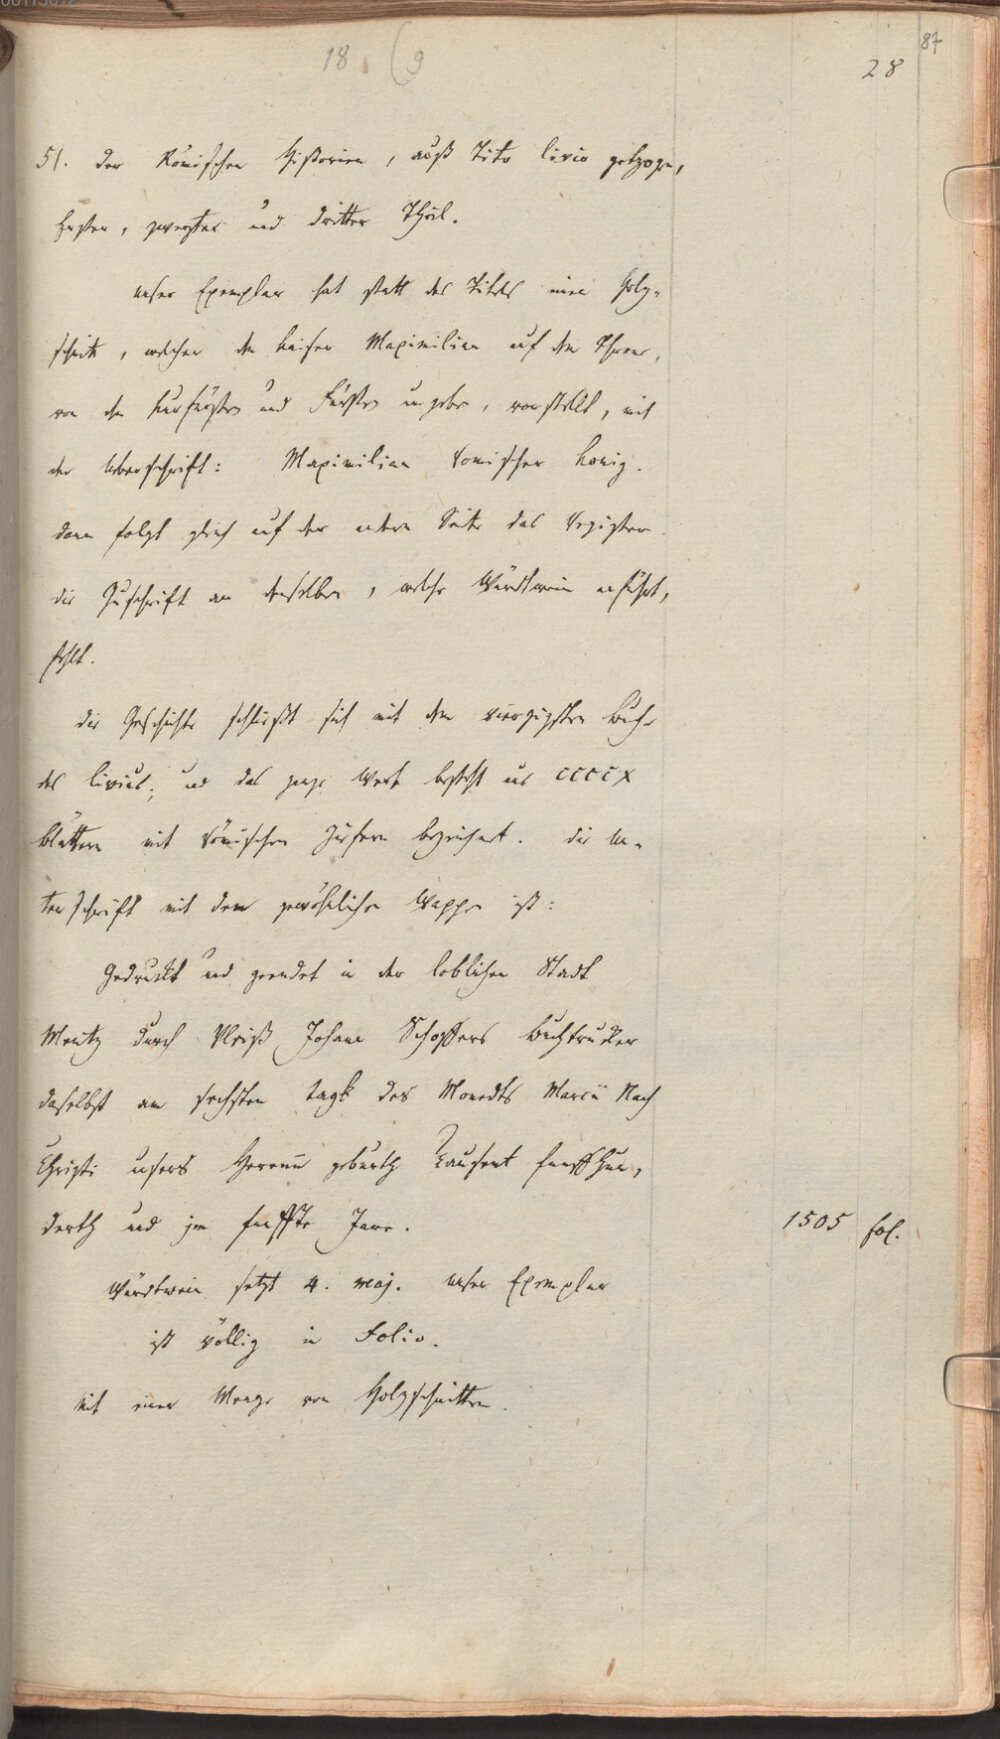 87
28
18 (9
51. der Römischen Historien, auß Tito livio getzogen,
Erster, zweyter und dritter Theil.
unser Exemplar hat statt des Titels einen Holz-
schnitt, welcher den Kaiser Maximilian auf dem Throne,
von den Kurfürsten und Fürsten umgeben, vorstellt, mit
der Ueberschrift: Maximilian Romischer Konig.
dann folgt gleich auf der andern Seite das Register.
die Zuschrift an denselben, welche Würdtwein anführt,
fehlt.
die Geschichte schließt sich mit dem vierzigsten Buche
des livius; und das ganze Werk besteht aus CCCCX
blättern mit römischen Ziffern bezeichnet. die Un-
terschrift mit dem gewöhnlichen Wappen ist:
Gedruckt und geendet in der loblichen Stadt
Mentz durch Vleiß Johann Schoffers Buchtrucker
daselbst am sechsten tagk des Monedts Marcii Nach
Christi unsers Herenn geburth Tausent funffhun-
derth und jm funfften Jare.
1505 fol.
Würdtwein setzt 4. maj. unser Exemplar
ist völlig in Folio.
Mit einer Menge von Holzschnitten.